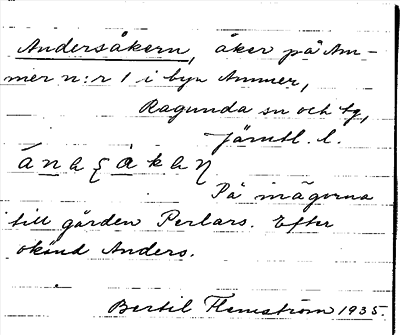 Andersåkern, åker på Am-
mer n:r 1 i byn Ammer,
Ragunda sn och tg,
Jämtl. l.
På inägorna
till gården Perlars. Efter
okänd Anders.
Bertil Flemström 1935.